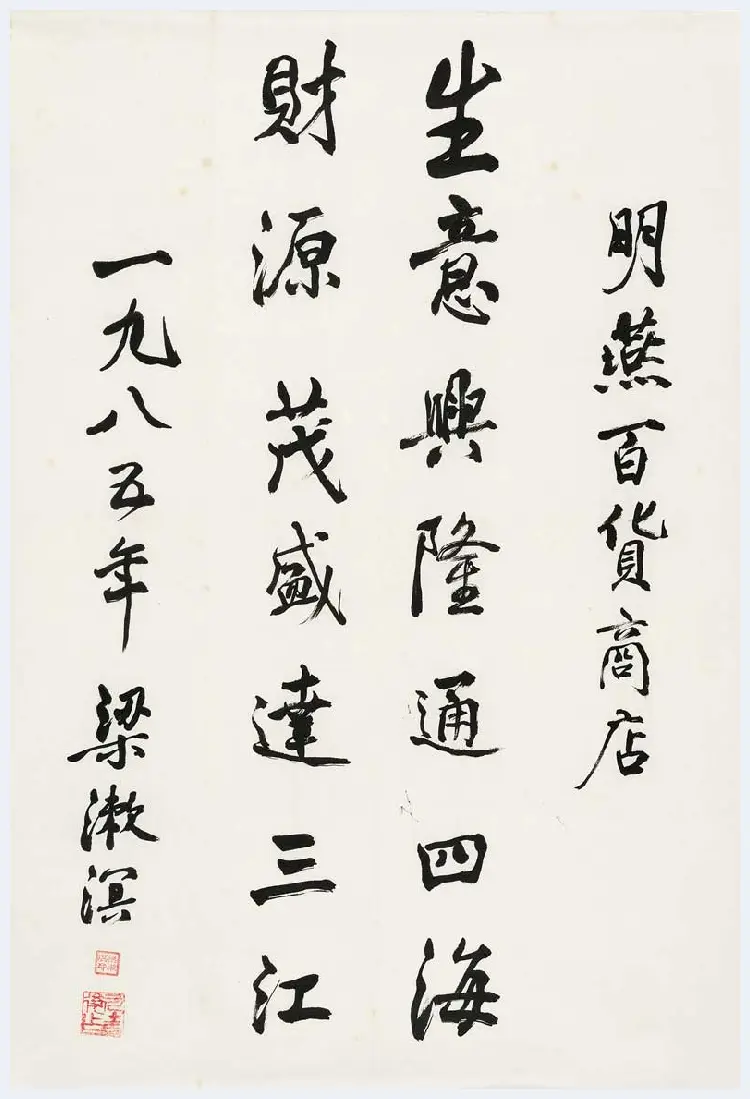 明燕百貨商店
生意興隆通四海
財源茂盛達三江
一九八五年 梁漱溟